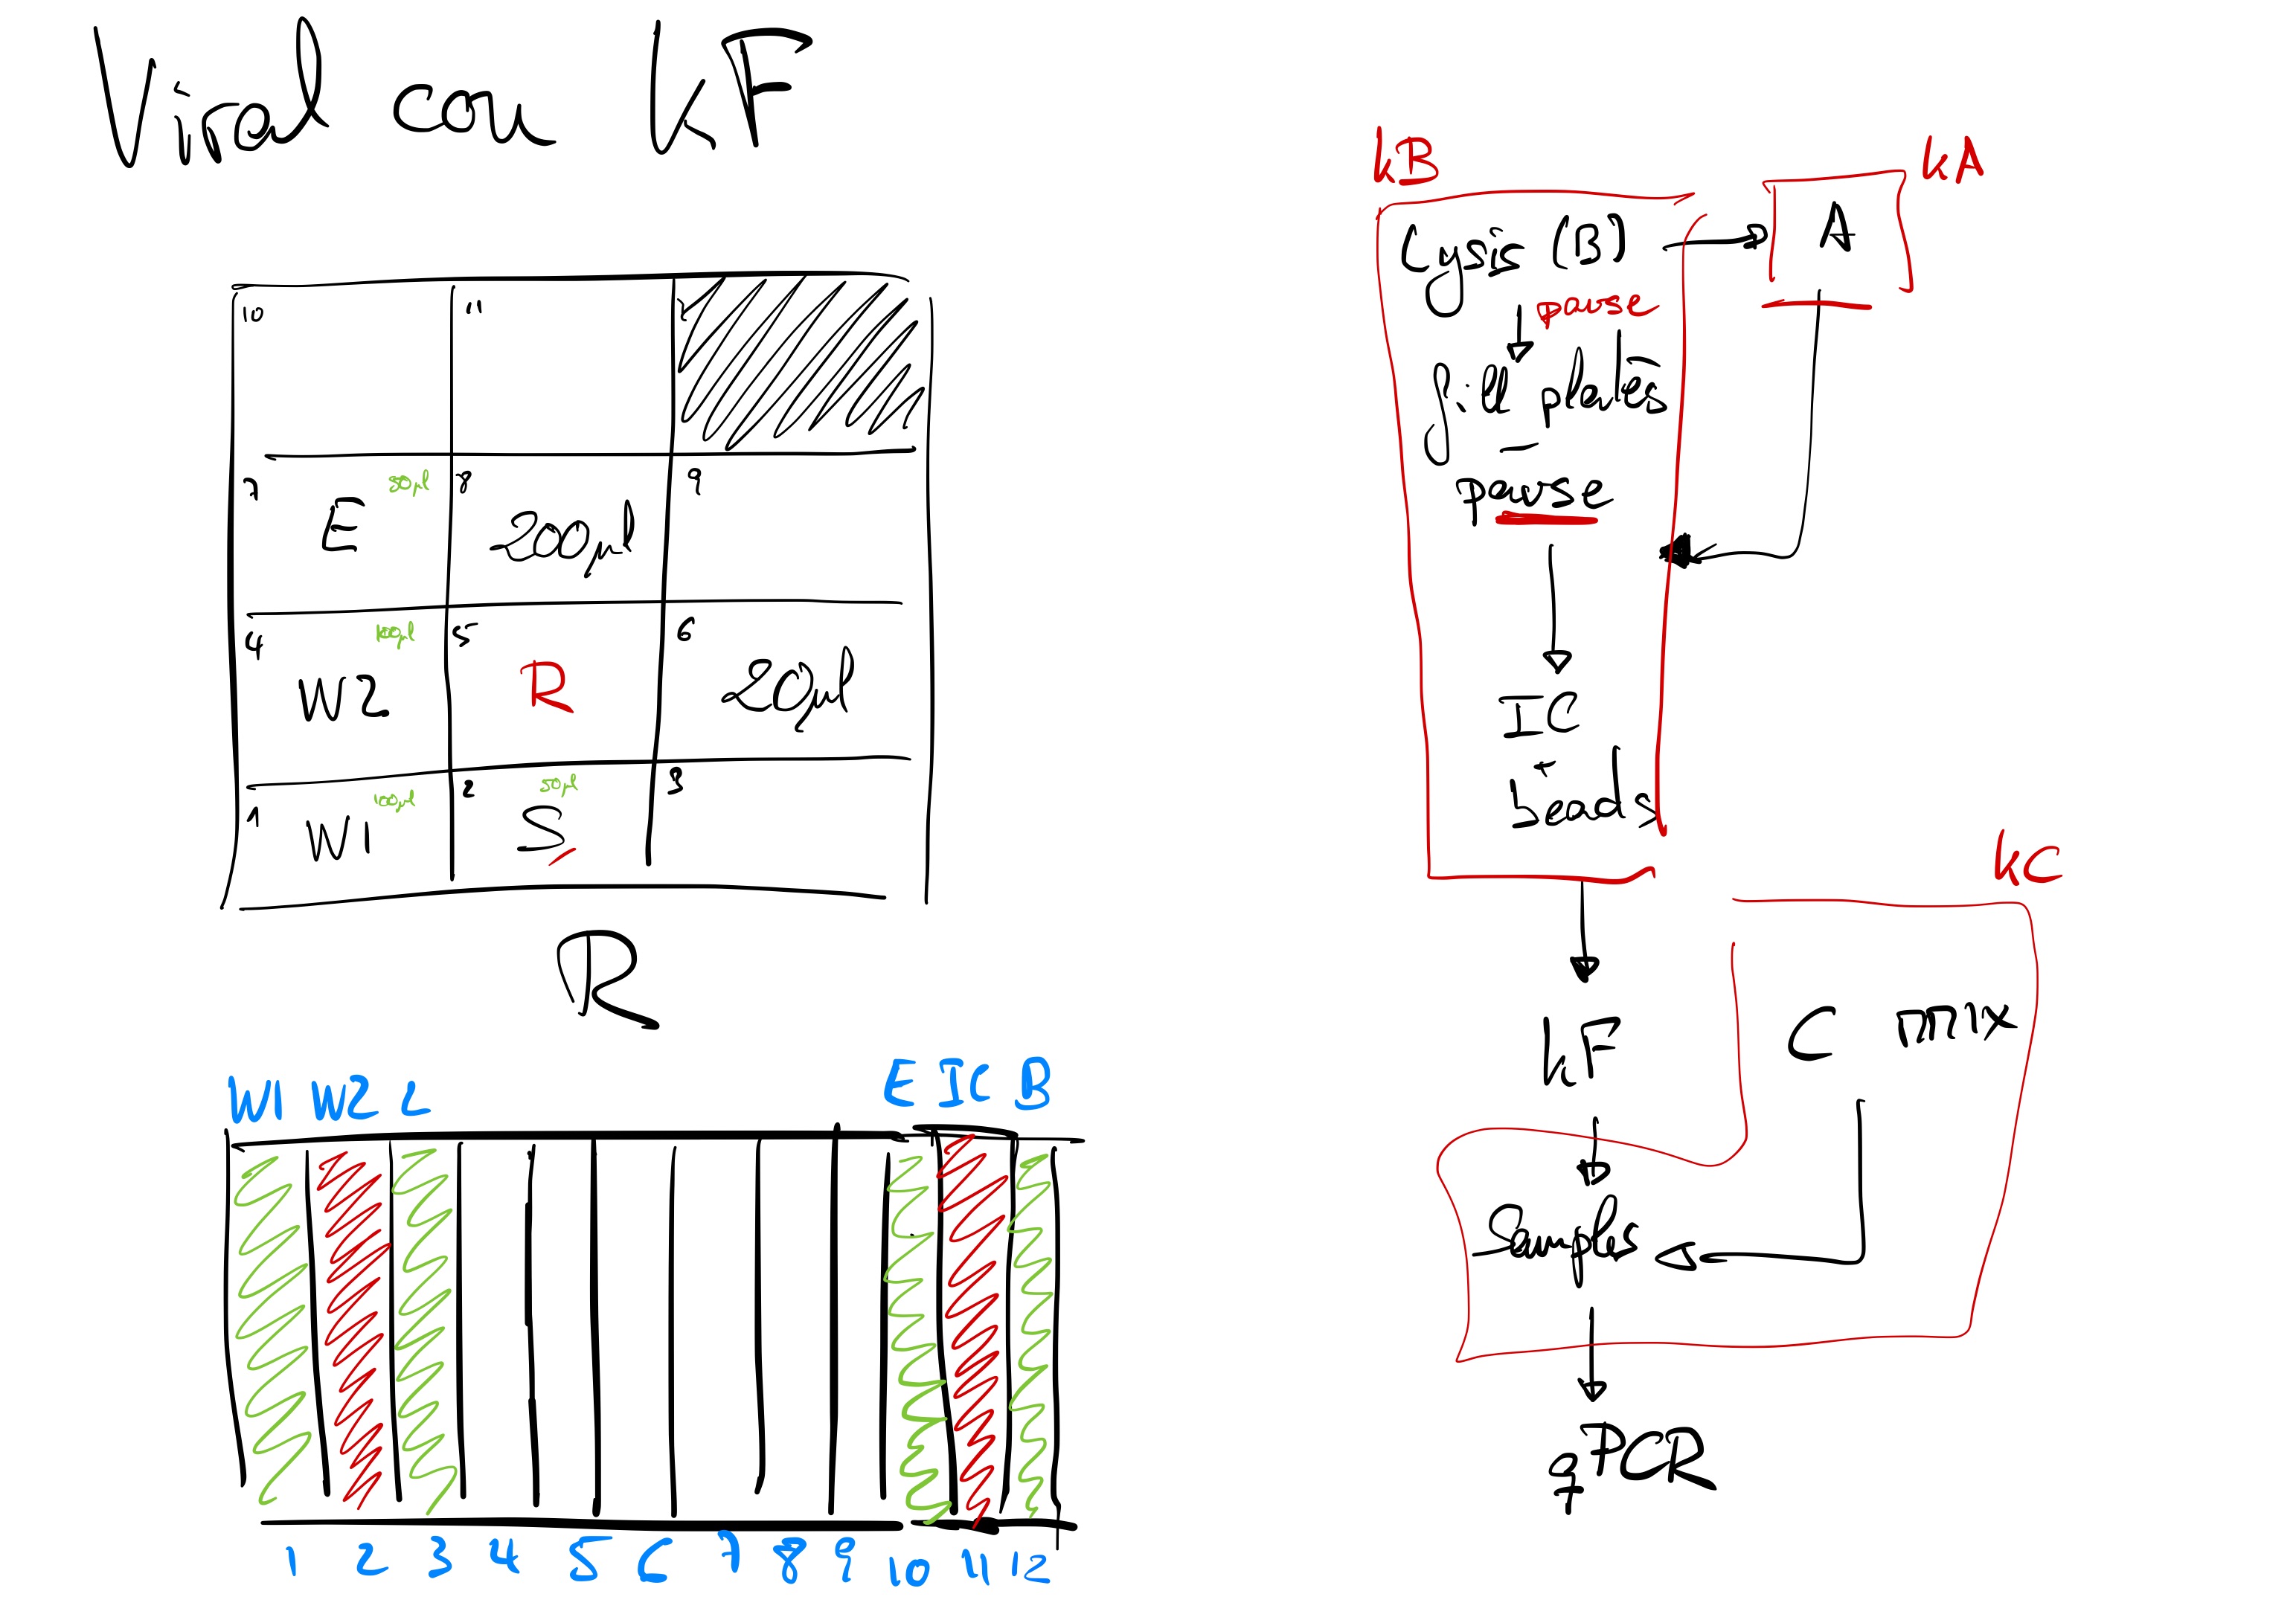 Viral con KF
10 11
7 E 50µl 8 200µl 9
4 W2 100µl 5 R 6 20µl
1 W1 100µl 2 S 50µl 3
R
W1 W2 L E IC B
1 2 3 4 5 6 7 8 9 10 11 12
KB
Lysis (B)
pause
fill plates
pause
IC
+
beads
KA
A
KF
KC
C mmx
Samples
qPCR